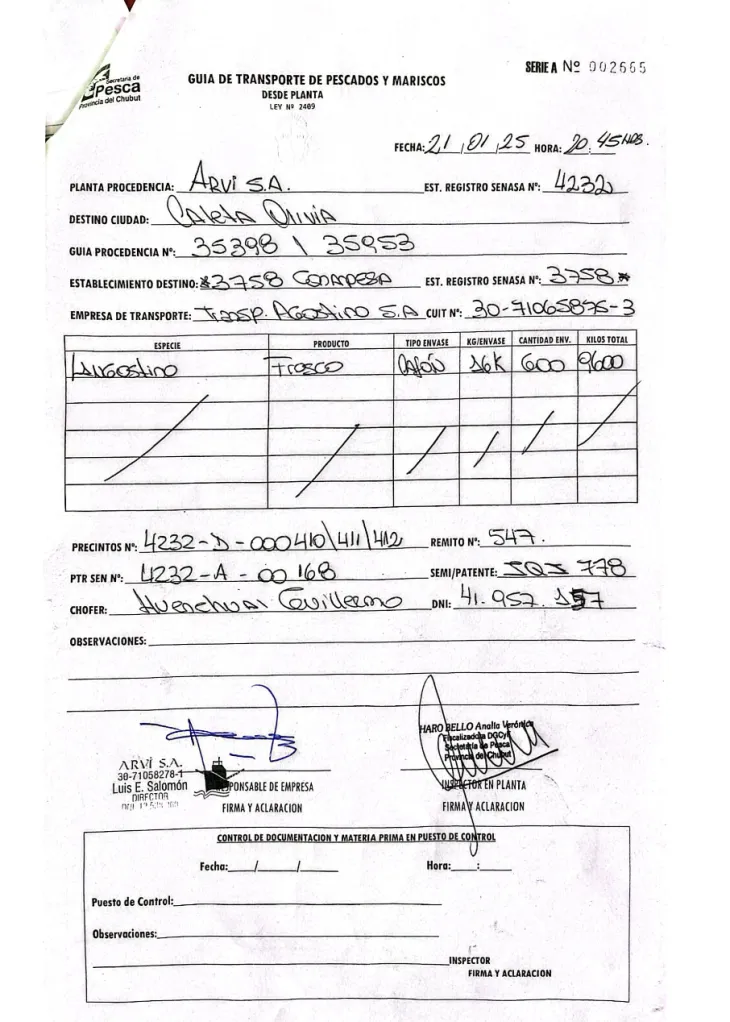 Secretaría de
Pesca
Provincia del Chubut
SERIE A Nº 002665
GUIA DE TRANSPORTE DE PESCADOS Y MARISCOS
DESDE PLANTA
LEY Nº 2409
FECHA: 21/01/25 HORA: 20:45 HRS.
PLANTA PROCEDENCIA: ARVI S.A. EST. REGISTRO SENASA Nº: 4232
DESTINO CIUDAD: Caleta Olivia
GUIA PROCEDENCIA Nº: 35398 \ 35953
ESTABLECIMIENTO DESTINO: *3758 CONARPESA EST. REGISTRO SENASA Nº: 3758*
EMPRESA DE TRANSPORTE: Transp. Agostino S.A CUIT Nº: 30-71065875-3
ESPECIE PRODUCTO TIPO ENVASE KG/ENVASE CANTIDAD ENV. KILOS TOTAL
Langostino Fresco Cajón 16K 600 9600
PRECINTOS Nº: 4232-D-000410\411\412 REMITO Nº: 547.
PTR SEN Nº: 4232-A-00168 SEMI/PATENTE: 778
CHOFER: Guillermo DNI: 41.957.
OBSERVACIONES:
HARO BELLO Analía Verónica
Fiscalizadora DGCyF
Secretaría de Pesca
Provincia del Chubut
ARVI S.A.
30-71058278-1
Luis E. Salomón
DIRECTOR
RESPONSABLE DE EMPRESA INSPECTOR EN PLANTA
FIRMA Y ACLARACION FIRMA Y ACLARACION
CONTROL DE DOCUMENTACION Y MATERIA PRIMA EN PUESTO DE CONTROL
Fecha: / / Hora: :
Puesto de Control:
Observaciones:
INSPECTOR
FIRMA Y ACLARACION